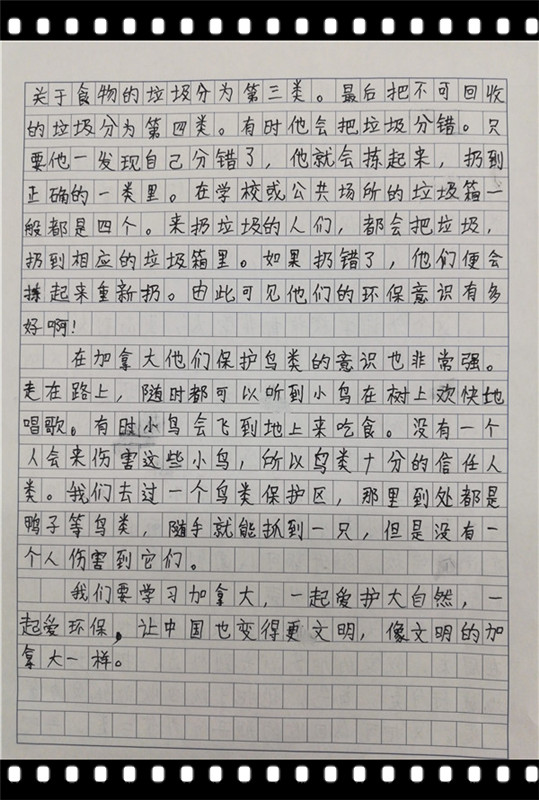 关于食物的垃圾分为第三类。最后把不可回收
的垃圾分为第四类。有时他会把垃圾分错。只
要他一发现自己分错了，他就会拣起来，扔到
正确的一类里。在学校或公共场所的垃圾箱一
般都是四个。来扔垃圾的人们，都会把垃圾，
扔到相应的垃圾箱里。如果扔错了，他们便会
拣起来重新扔。由此可见他们的环保意识有多
好啊！
在加拿大他们保护鸟类的意识也非常强。
走在路上，随时都可以听到小鸟在树上欢快地
唱歌。有时小鸟会飞到地上来吃食。没有一个
人会来伤害这些小鸟，所以鸟类十分的信任人
类。我们去过一个鸟类保护区，那里到处都是
鸭子等鸟类，随手就能抓到一只，但是没有一
个人伤害到它们。
我们要学习加拿大，一起爱护大自然，一
起爱环保，让中国也变得更文明，像文明的加
拿大一样。